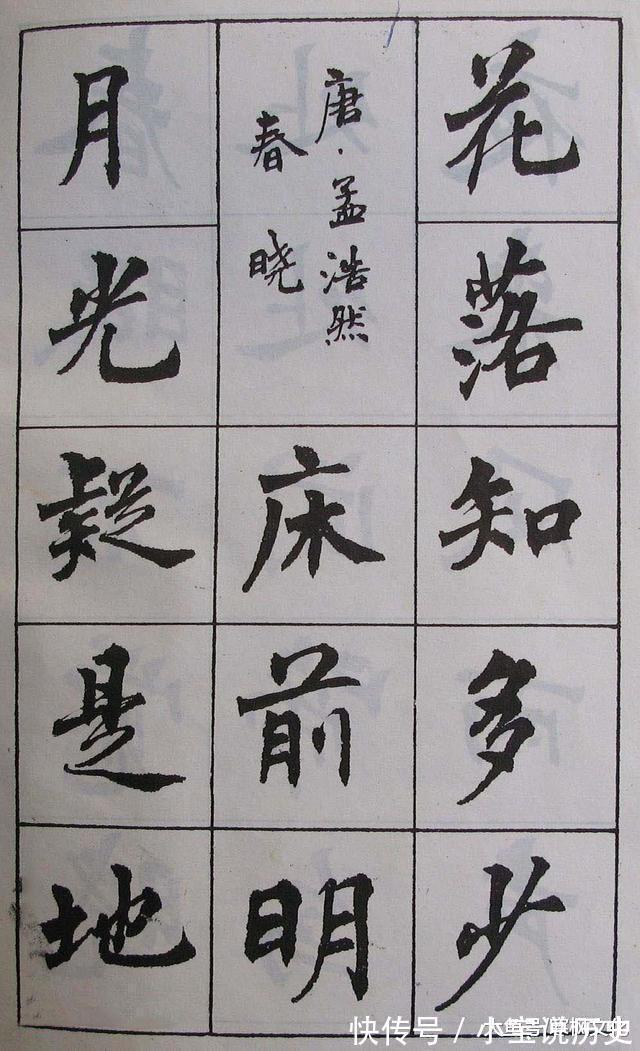 花落知多少
唐·孟浩然
春晓
床前明
月光疑是地
快传号／小宝说历史